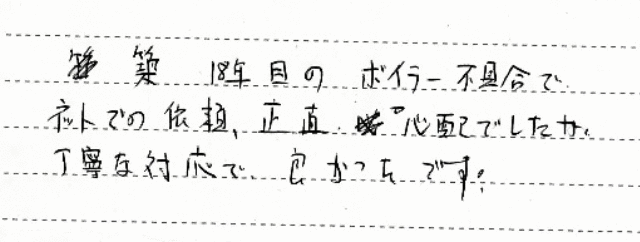 築 18年目のボイラー不具合で
ネットでの依頼、正直 心配でしたが、
丁寧な対応で、良かったです。